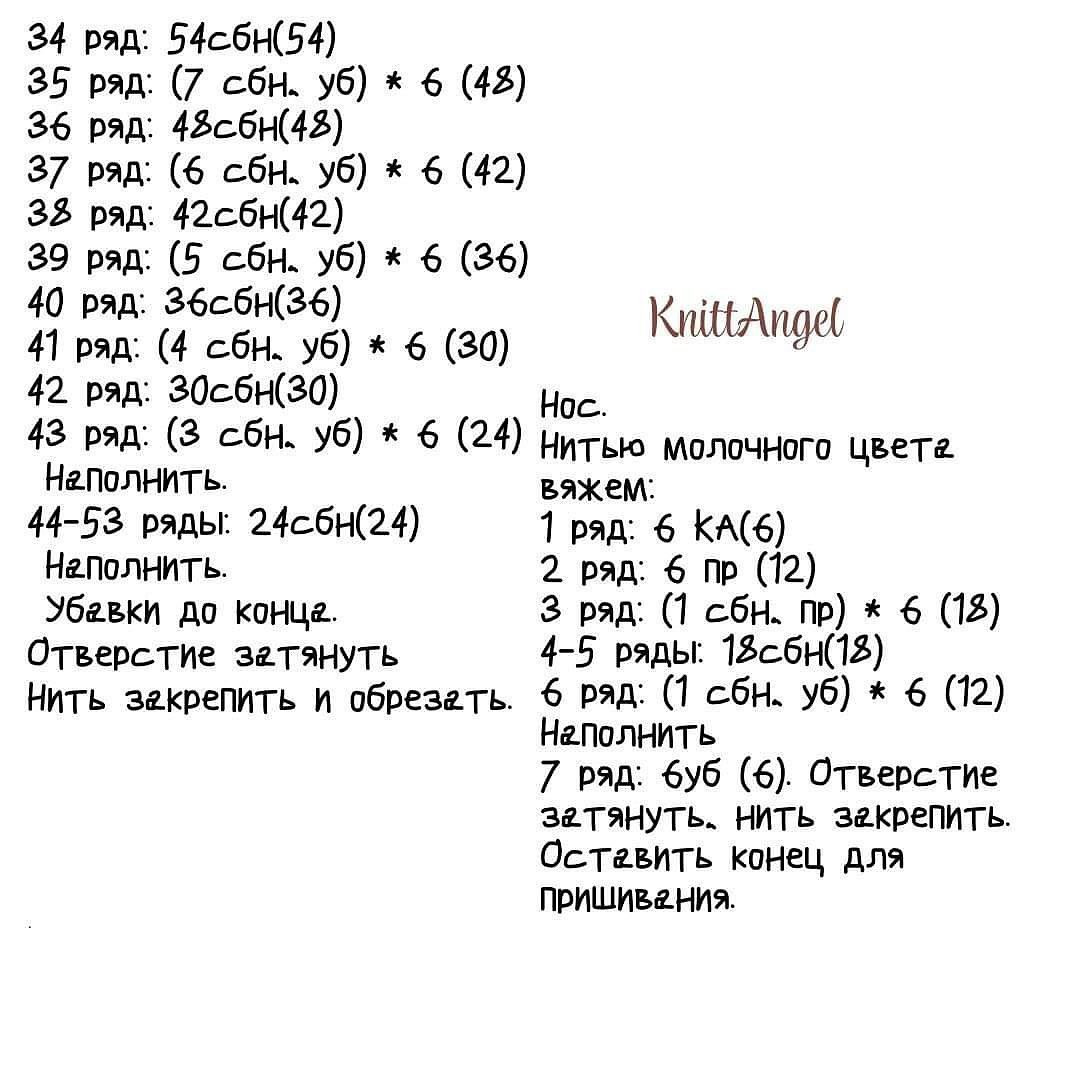 34 ряд: 54сбн(54)
35 ряд: (7 сбн. уб) * 6 (48)
36 ряд: 48сбн(48)
37 ряд: (6 сбн. уб) * 6 (42)
38 ряд: 42сбн(42)
39 ряд: (5 сбн. уб) * 6 (36)
40 ряд: 36сбн(36)
41 ряд: (4 сбн. уб) * 6 (30)
42 ряд: 30сбн(30)
43 ряд: (3 сбн. уб) * 6 (24)
Наполнить.
44-53 ряды: 24сбн(24)
Наполнить.
Убавки до конца.
Отверстие затянуть
Нить закрепить и обрезать.
KnittAngel
Нос.
Нитью молочного цвета
вяжем:
1 ряд: 6 КА(6)
2 ряд: 6 пр (12)
3 ряд: (1 сбн. пр) * 6 (18)
4-5 ряды: 18сбн(18)
6 ряд: (1 сбн. уб) * 6 (12)
Наполнить
7 ряд: 6уб (6). Отверстие
затянуть. нить закрепить.
Оставить конец для
пришивания.